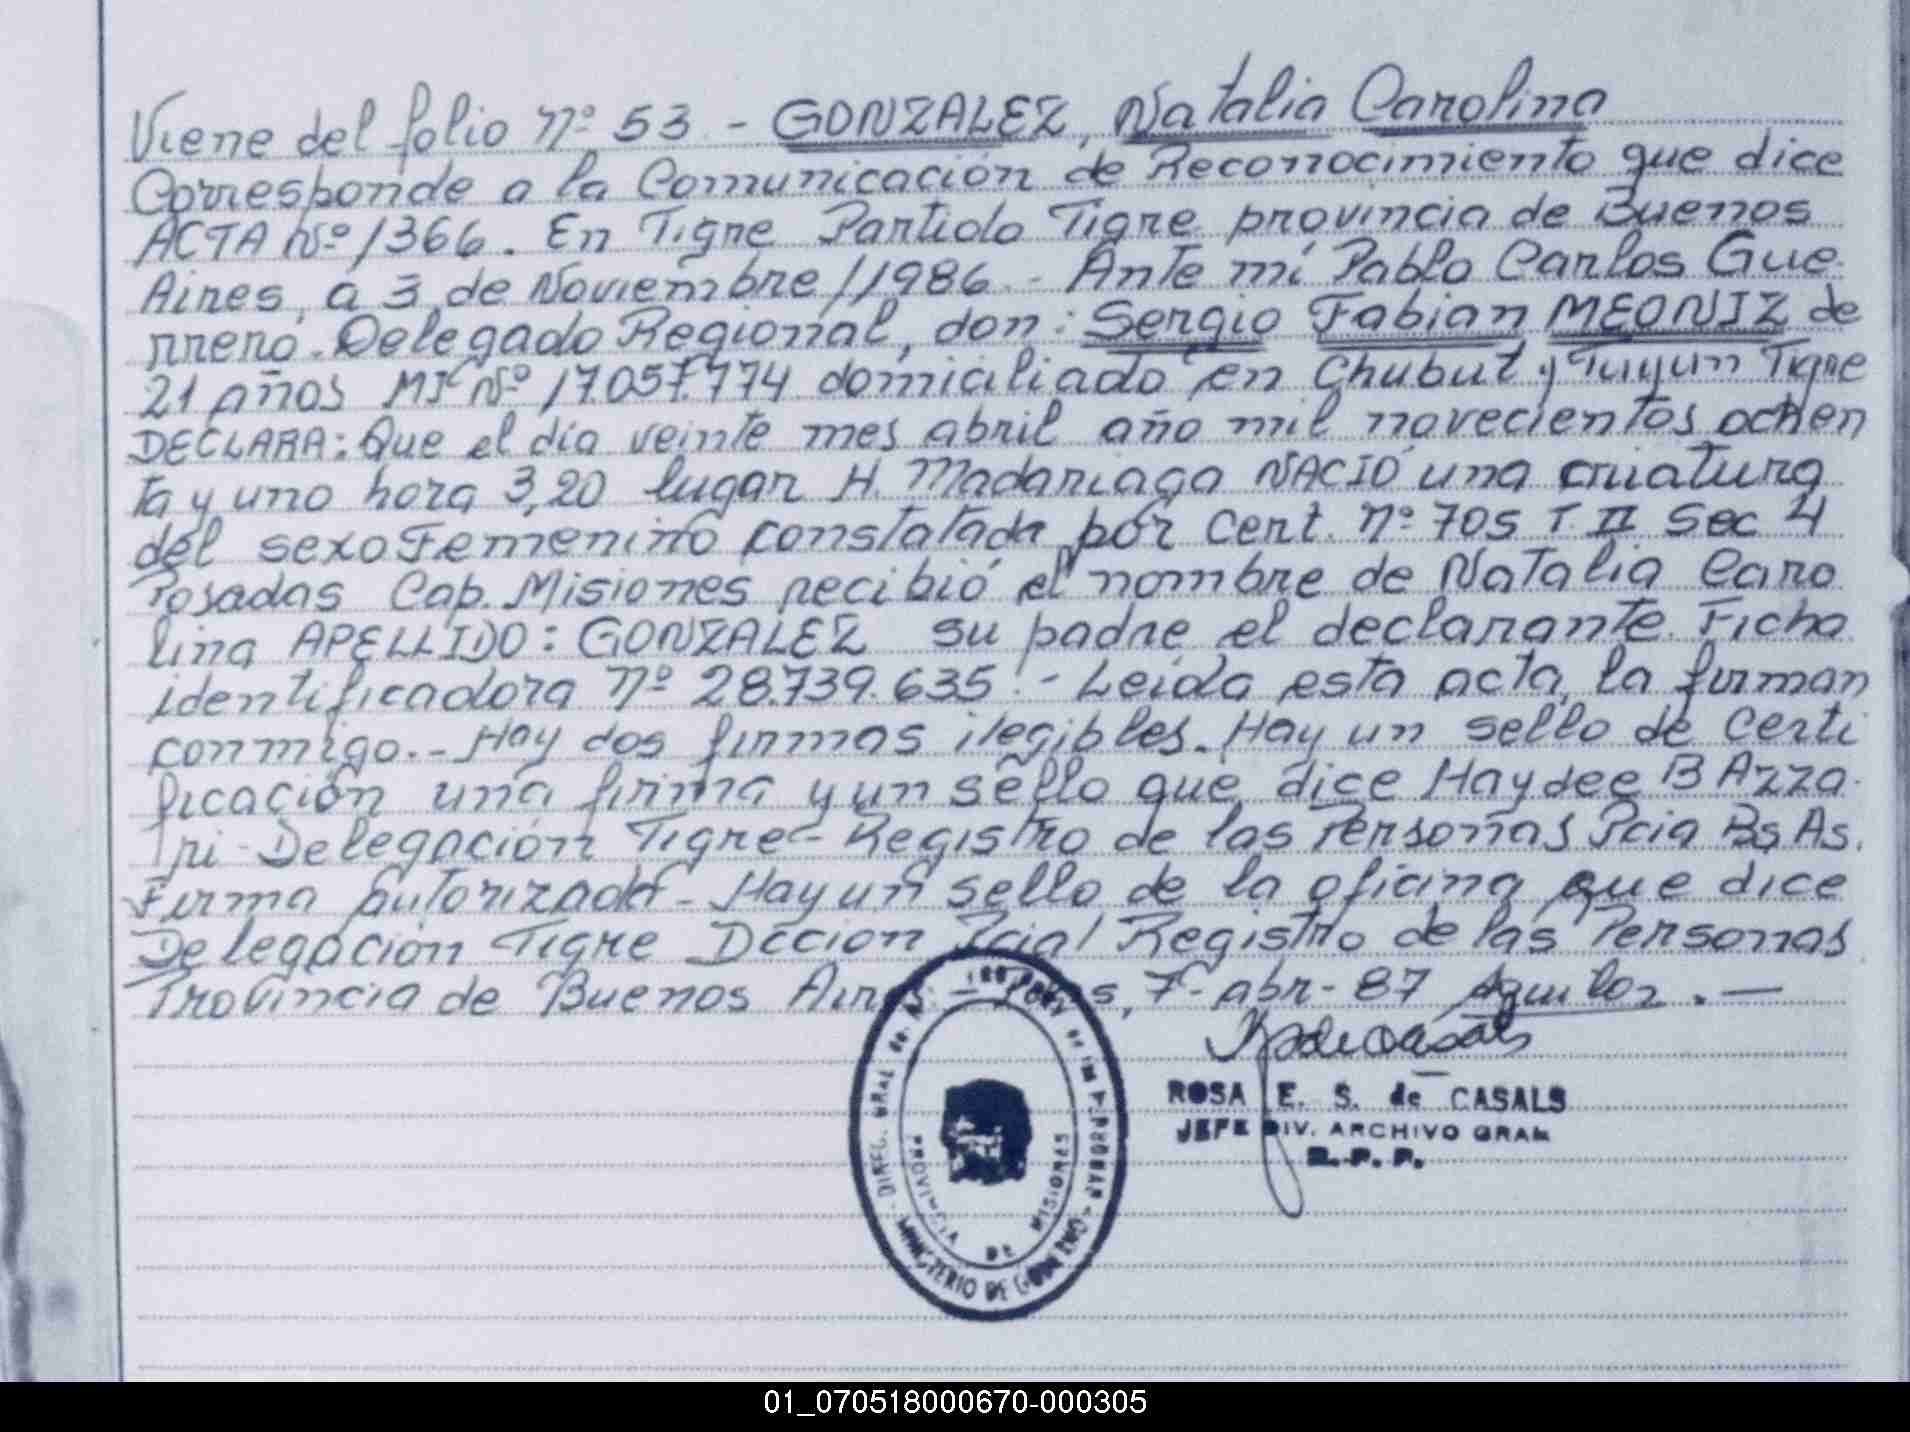 Viene del folio Nº 53 - GONZALEZ, Natalia Carolina
Corresponde a la Comunicación de Reconocimiento que dice
ACTA Nº 1366. En Tigre Partido Tigre provincia de Buenos
Aires, a 3 de Noviembre / 1986.- Ante mí Pablo Carlos Gue
rrero. Delegado Regional, don: Sergio Fabian MEONIZ de
21 años MI Nº 17.057.774 domiciliado en Chubut y Tuyun Tigre
DECLARA: Que el día veinte mes abril año mil novecientos ochen
ta y uno hora 3,20 lugar H. Madariaga NACIÓ una criatura
del sexo Femenino constatada por Cert. nº 705 T. II Sec 4
Posadas Cap. Misiones recibió el nombre de Natalia Caro
lina APELLIDO: GONZALEZ su padre el declarante. Ficha
identificadora Nº 28.739.635.- Leída esta acta, la firman
conmigo.- Hay dos firmas ilegibles. Hay un sello de Certi
ficación una firma y un sello que dice Haydee B Azza
ri - Delegación Tigre - Registro de las Personas Pcia Bs As.
Firma Autorizada - Hay un sello de la oficina que dice
Delegación Tigre Dccion Pcial Registro de las Personas
Provincia de Buenos Aires, 7-abr-87 Aguilar. —
DIREG. GRAL de
MINISTERIO DE GOBIERNO
PROVINCIA DE MISIONES
R de Casals
ROSA E. S. de CASALS
JEFE DIV. ARCHIVO GRAL
R. P. P.
01_070518000670-000305